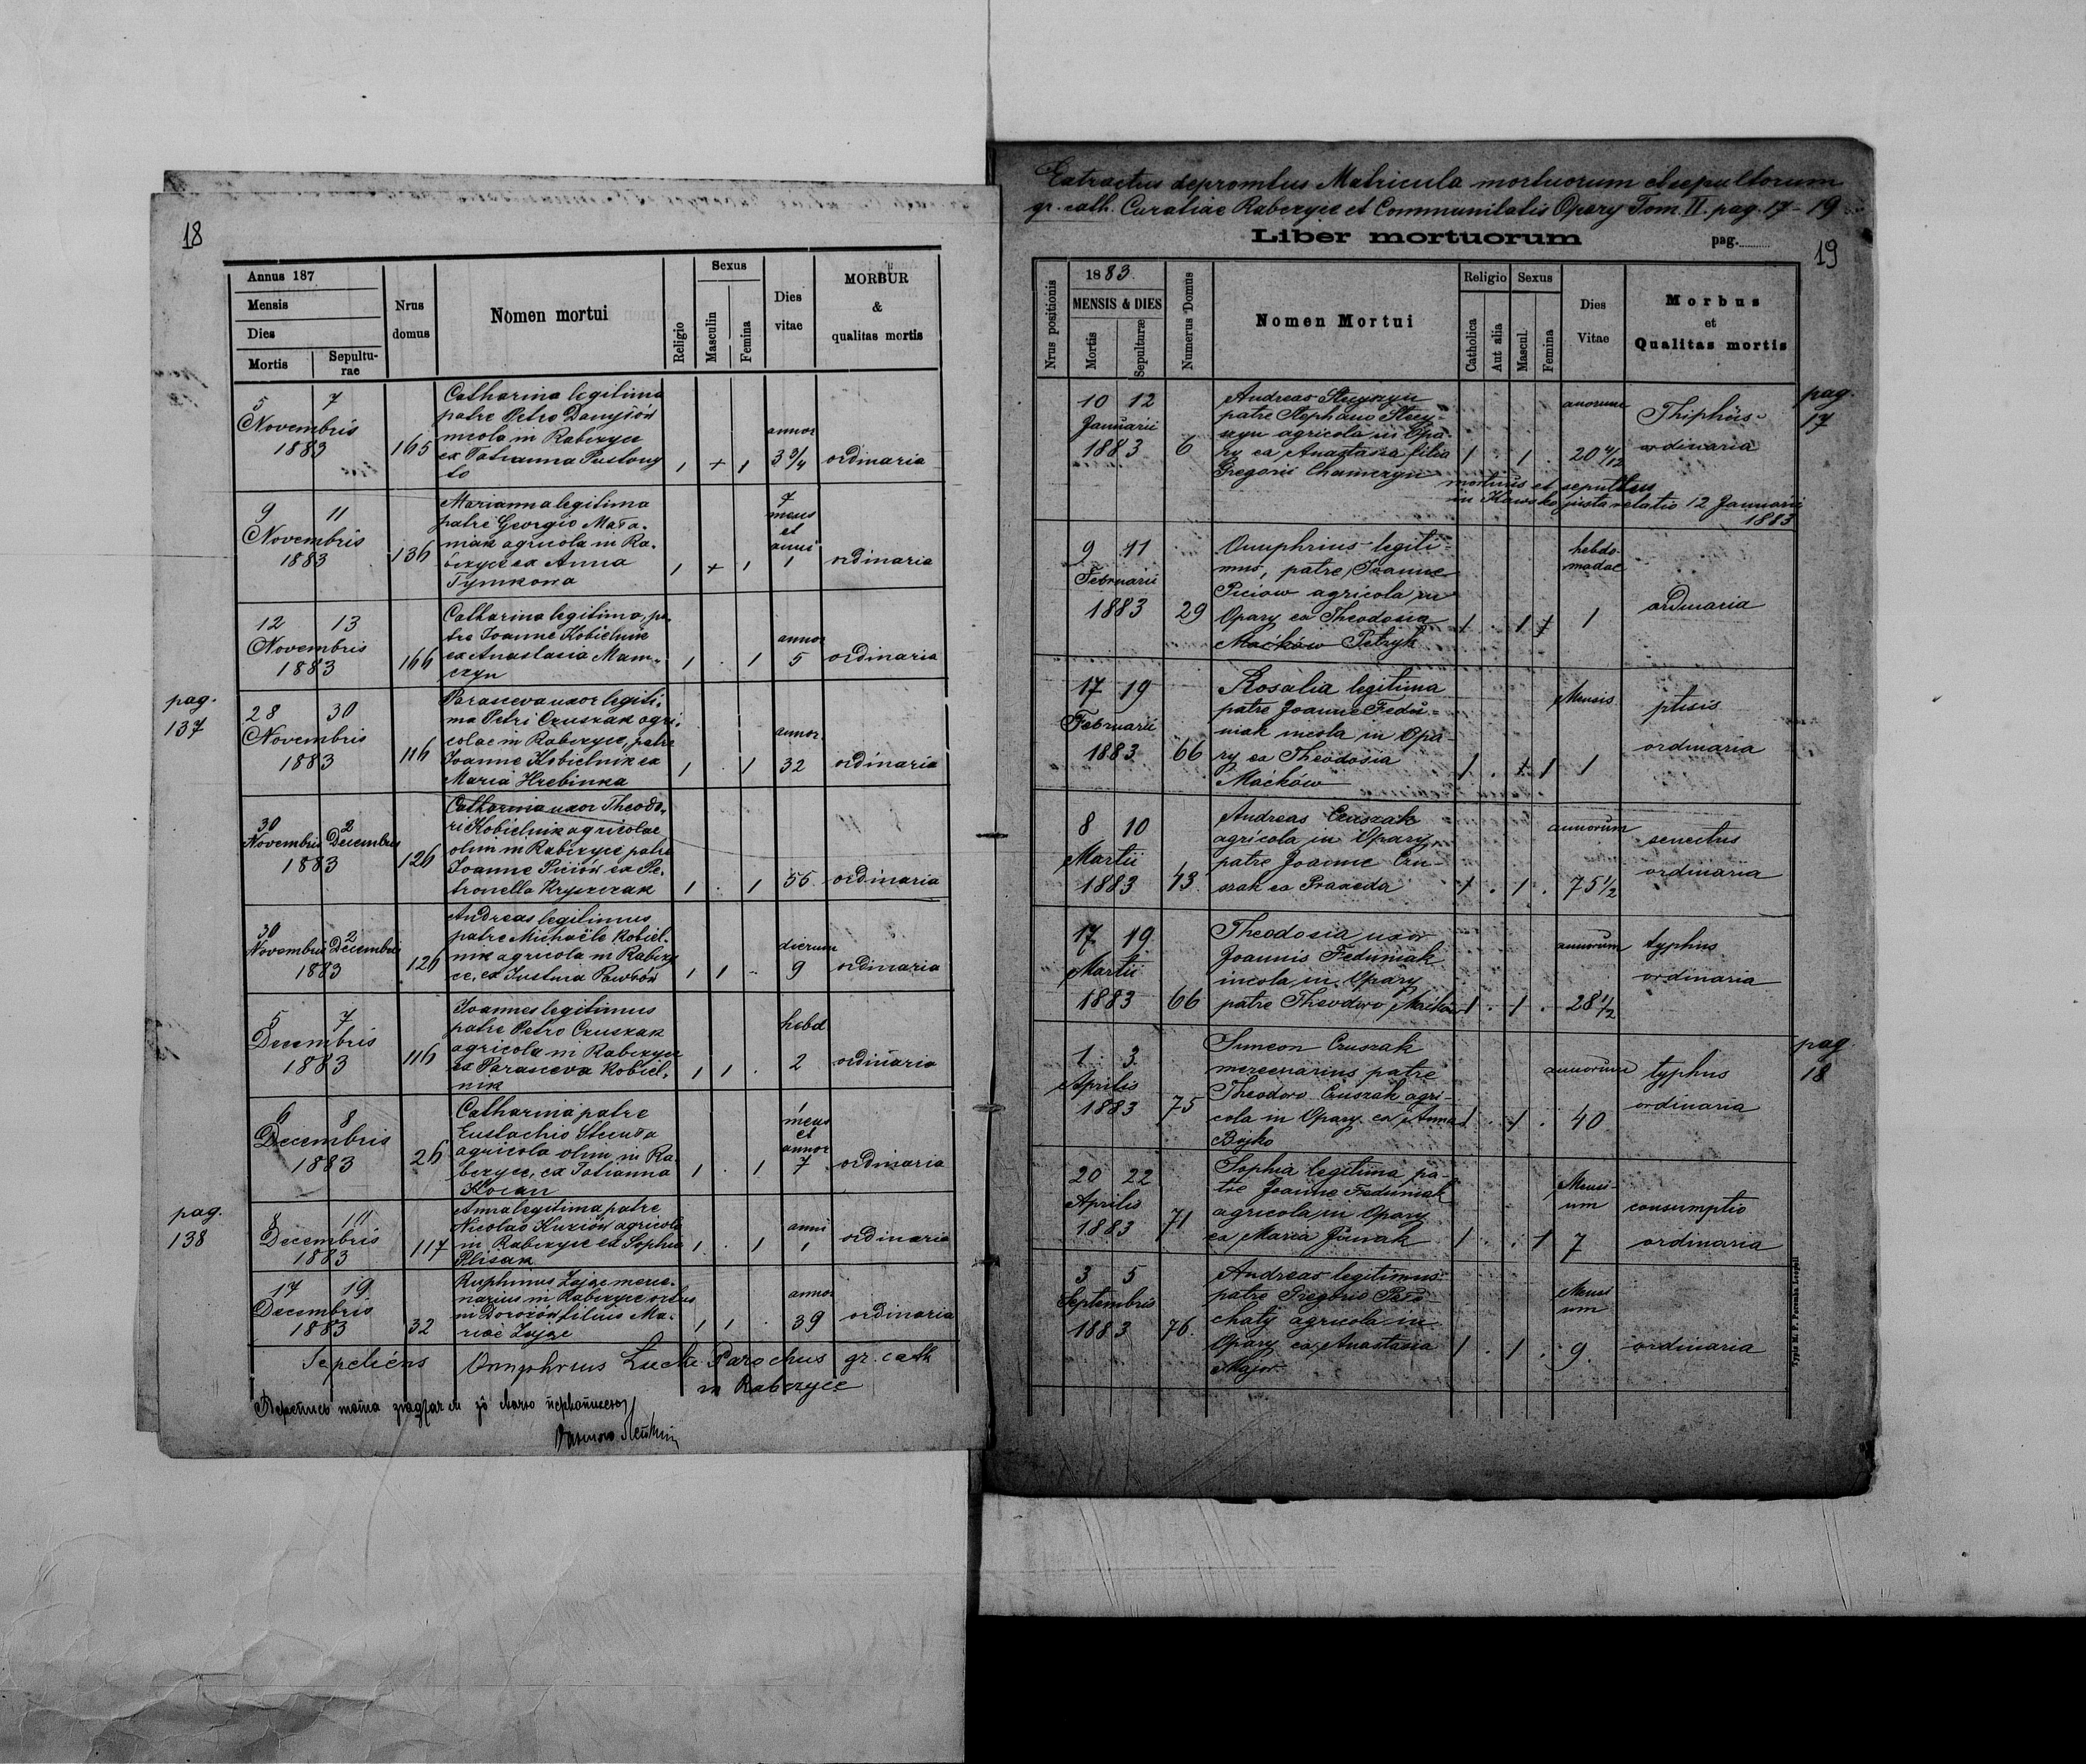 18
Annus 187
Mensis
Dies
Mortis
Sepultu-
rae
Nrus
domus
Nomen mortui
Religio
Sexus
Masculin
Femina
Dies
vitae
MORBUR
&
qualitas mortis
5 7
Novembris
1883
165
Catharina legitima
patre Petro Danysiów
incola in Rabczyce
ex Tatianna Pustowy
to
1 + 1
annor
3 3/4
ordinaria
9 11
Novembris
1883
136
Marianna legitima
patre Georgio Mata-
niak agricola in Ra-
bczyce ex Anna
Tymkowa
1 + 1
7
mens
et
anni
1
ordinaria
12 13
Novembris
1883
166
Catharina legitima, pa-
tre Ioanne Kobielnik
ex Anastasia Mam-
czyn
1 . 1
annor
5
ordinaria
pag.
137
28 30
Novembris
1883
116
Parasceva uxor legiti-
ma Petri Czuszak agri-
colae in Rabczyce, patre
Ioanne Kobielnik ex
Maria Hrebinka
1 . 1
annor.
32
ordinaria
30 2
Novembris Decembris
1883
126
Catharina uxor Theodo-
ri Kobielnik agricolae
olim in Rabczyce patre
Ioanne Piciów ex Pe-
tronella Kryszczak
1 . 1
55
ordinaria
30 2
Novembris Decembris
1883
126
Andreas legitimus
patre Michaële Kobiel-
nik agricola in Rabczy
ce, ex Justina Pawłów
1 1 -
dierum
9
ordinaria
5 7
Decembris
1883
116
Ioannes legitimus
patre Petro Czuszak
agricola in Rabczyce
ex Parasceva Kobiel-
nik
1 1 .
hebd
2
ordinaria
6 8
Decembris
1883
26
Catharina patre
Eustachio
agricola olim in Ra-
bczyce, ex Tatianna
Kocan
1 . 1
1
mens
et
annor
7
ordinaria
pag.
138
8 10
Decembris
1883
117
Anna legitima patre
Nicolao Kuziów agricola
in Rabczyce ex Sophia
Plisak
1 . 1
anni
1
ordinaria
17 19
Decembris
1883
32
Ruphinus Zajac merce-
narius in Rabczyce ortus
in Dorożów filius Ma-
riae Zajac
1 1 .
annor
39
ordinaria
Sepeliens Onuphrius Parochus gr. cath
in Rabczyce
Extractus depromtus Matricula mortuorum et sepultorum
gr. cath. Curatiae Rabczyce et Communitatis Opary Tom. II. pag. 17-19
Liber mortuorum
pag.
19
Nrus positionis
1883.
MENSIS & DIES
Mortis
Sepulturæ
Numerus Domus
Nomen Mortui
Religio
Catholica
Aut alia
Sexus
Mascul.
Femina
Dies
Vitae
Morbus
et
Qualitas mortis
10 12
Januarii
1883
6
Andreas
patre Stephano
agricola in Opa-
ry ex Anastasia filia
Gregorii
1 . 1 .
anorum
20 4/12
Thiphus-
ordinaria
pag.
17
mortuus et sepultus
in juxta relatio 12 Januarii
1883
9 11
Februarii
1883
29
Onuphrius legiti-
mus, patre Joanne
Piciow agricola in
Opary ex Theodosia
Maćków Petryk
1 . 1 +
hebdo-
madae
1
ordinaria
17 19
Februarii
1883
66
Rosalia legitima
patre Joanne Fedu-
niak incola in Opa-
ry ex Theodosia
Maćków
1 . + 1
Mensis
1
ptisis
ordinaria
8 10
Martii
1883
43.
Andreas Czuszak
agricola in Opary
patre Joanne Czu-
szak ex Praxeda
1 . 1 .
annorum
75 1/2
senectus
ordinaria
17 19
Martii
1883
66
Theodosia uxor
Joannis Feduniak
incola in Opary
patre Theodoro Maćków
1 . 1 .
annorum
28 1/2
typhus
ordinaria
pag
18
1 3.
Aprilis
1883
75
Simeon Czuszak
mercenarius patre
Theodoro Czuszak agri-
cola in Opary ex Anna
Bojko
1 . 1 .
annorum
40
typhus
ordinaria
20 22
Aprilis
1883
71
Sophia legitima pa-
tre Joanne Feduniak
agricola in Opary
ex Maria
1 . . 1
Mensi-
um
7
consumptio
ordinaria
3 5
Septembris
1883
76.
Andreas legitimus
patre Gregorio
chatý agricola in
Opary ex Anastasia
Major
1 . 1 .
Mensi
um
9.
ordinaria